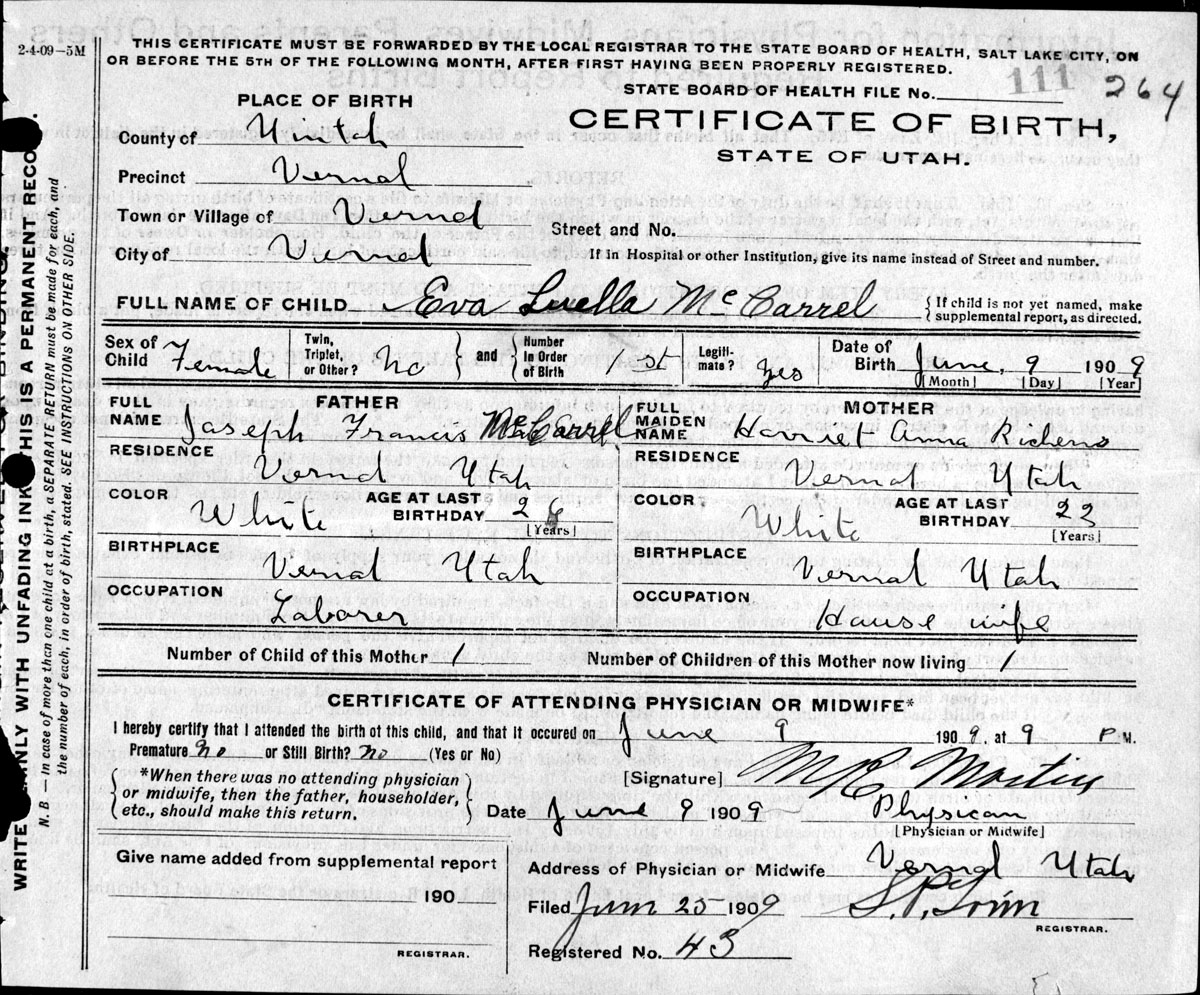 2-4-09-5M
THIS CERTIFICATE MUST BE FORWARDED BY THE LOCAL REGISTRAR TO THE STATE BOARD OF HEALTH, SALT LAKE CITY, ON
OR BEFORE THE 5TH OF THE FOLLOWING MONTH, AFTER FIRST HAVING BEEN PROPERLY REGISTERED.
STATE BOARD OF HEALTH FILE No. 111 264
PLACE OF BIRTH
CERTIFICATE OF BIRTH,
STATE OF UTAH.
County of Uintah
Precinct Vernal
Town or Village of Vernal
Street and No.
City of Vernal
If in Hospital or other Institution, give its name instead of Street and number.
FULL NAME OF CHILD Eva Luella McCarrel {If child is not yet named, make supplemental report, as directed.
Sex of Child Female Twin, Triplet, or Other? No } and { Number in Order of Birth 1st Legitimate? Yes Date of Birth June, 9 1909
[Month] [Day] [Year]
FATHER
FULL NAME Joseph Francis McCarrel
RESIDENCE
Vernal Utah
COLOR White AGE AT LAST BIRTHDAY 26
[Years]
BIRTHPLACE
Vernal Utah
OCCUPATION
Laborer
MOTHER
FULL MAIDEN NAME Harriet Anna Richens
RESIDENCE
Vernal Utah
COLOR White AGE AT LAST BIRTHDAY 23
[Years]
BIRTHPLACE
Vernal Utah
OCCUPATION
Hause wife
Number of Child of this Mother 1 Number of Children of this Mother now living 1
CERTIFICATE OF ATTENDING PHYSICIAN OR MIDWIFE*
I hereby certify that I attended the birth of this child, and that it occured on June 9 1909, at 9 P.M.
Premature No or Still Birth? No (Yes or No)
*When there was no attending physician
or midwife, then the father, householder,
etc., should make this return.
[Signature]
Date June 9 1909 Physican
[Physician or Midwife]
Give name added from supplemental report
190
REGISTRAR.
Address of Physician or Midwife Vernal Utah
Filed June 25 1909
REGISTRAR.
Registered No. 43
WRITE PLAINLY WITH UNFADING INK THIS IS A PERMANENT RECO
N. B.—In case of more than one child at a birth, a SEPARATE RETURN must be made for each, and
the number of each, in order of birth, stated. SEE INSTRUCTIONS ON OTHER SIDE.